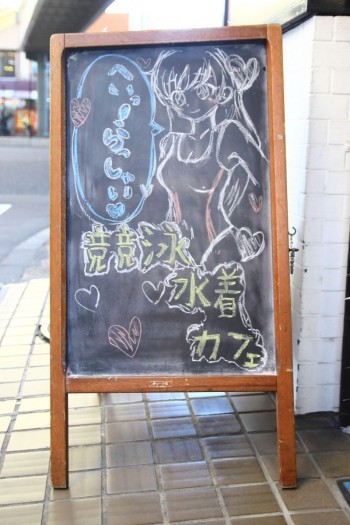 へいらっしゃい♡
競泳
水着
カフェ